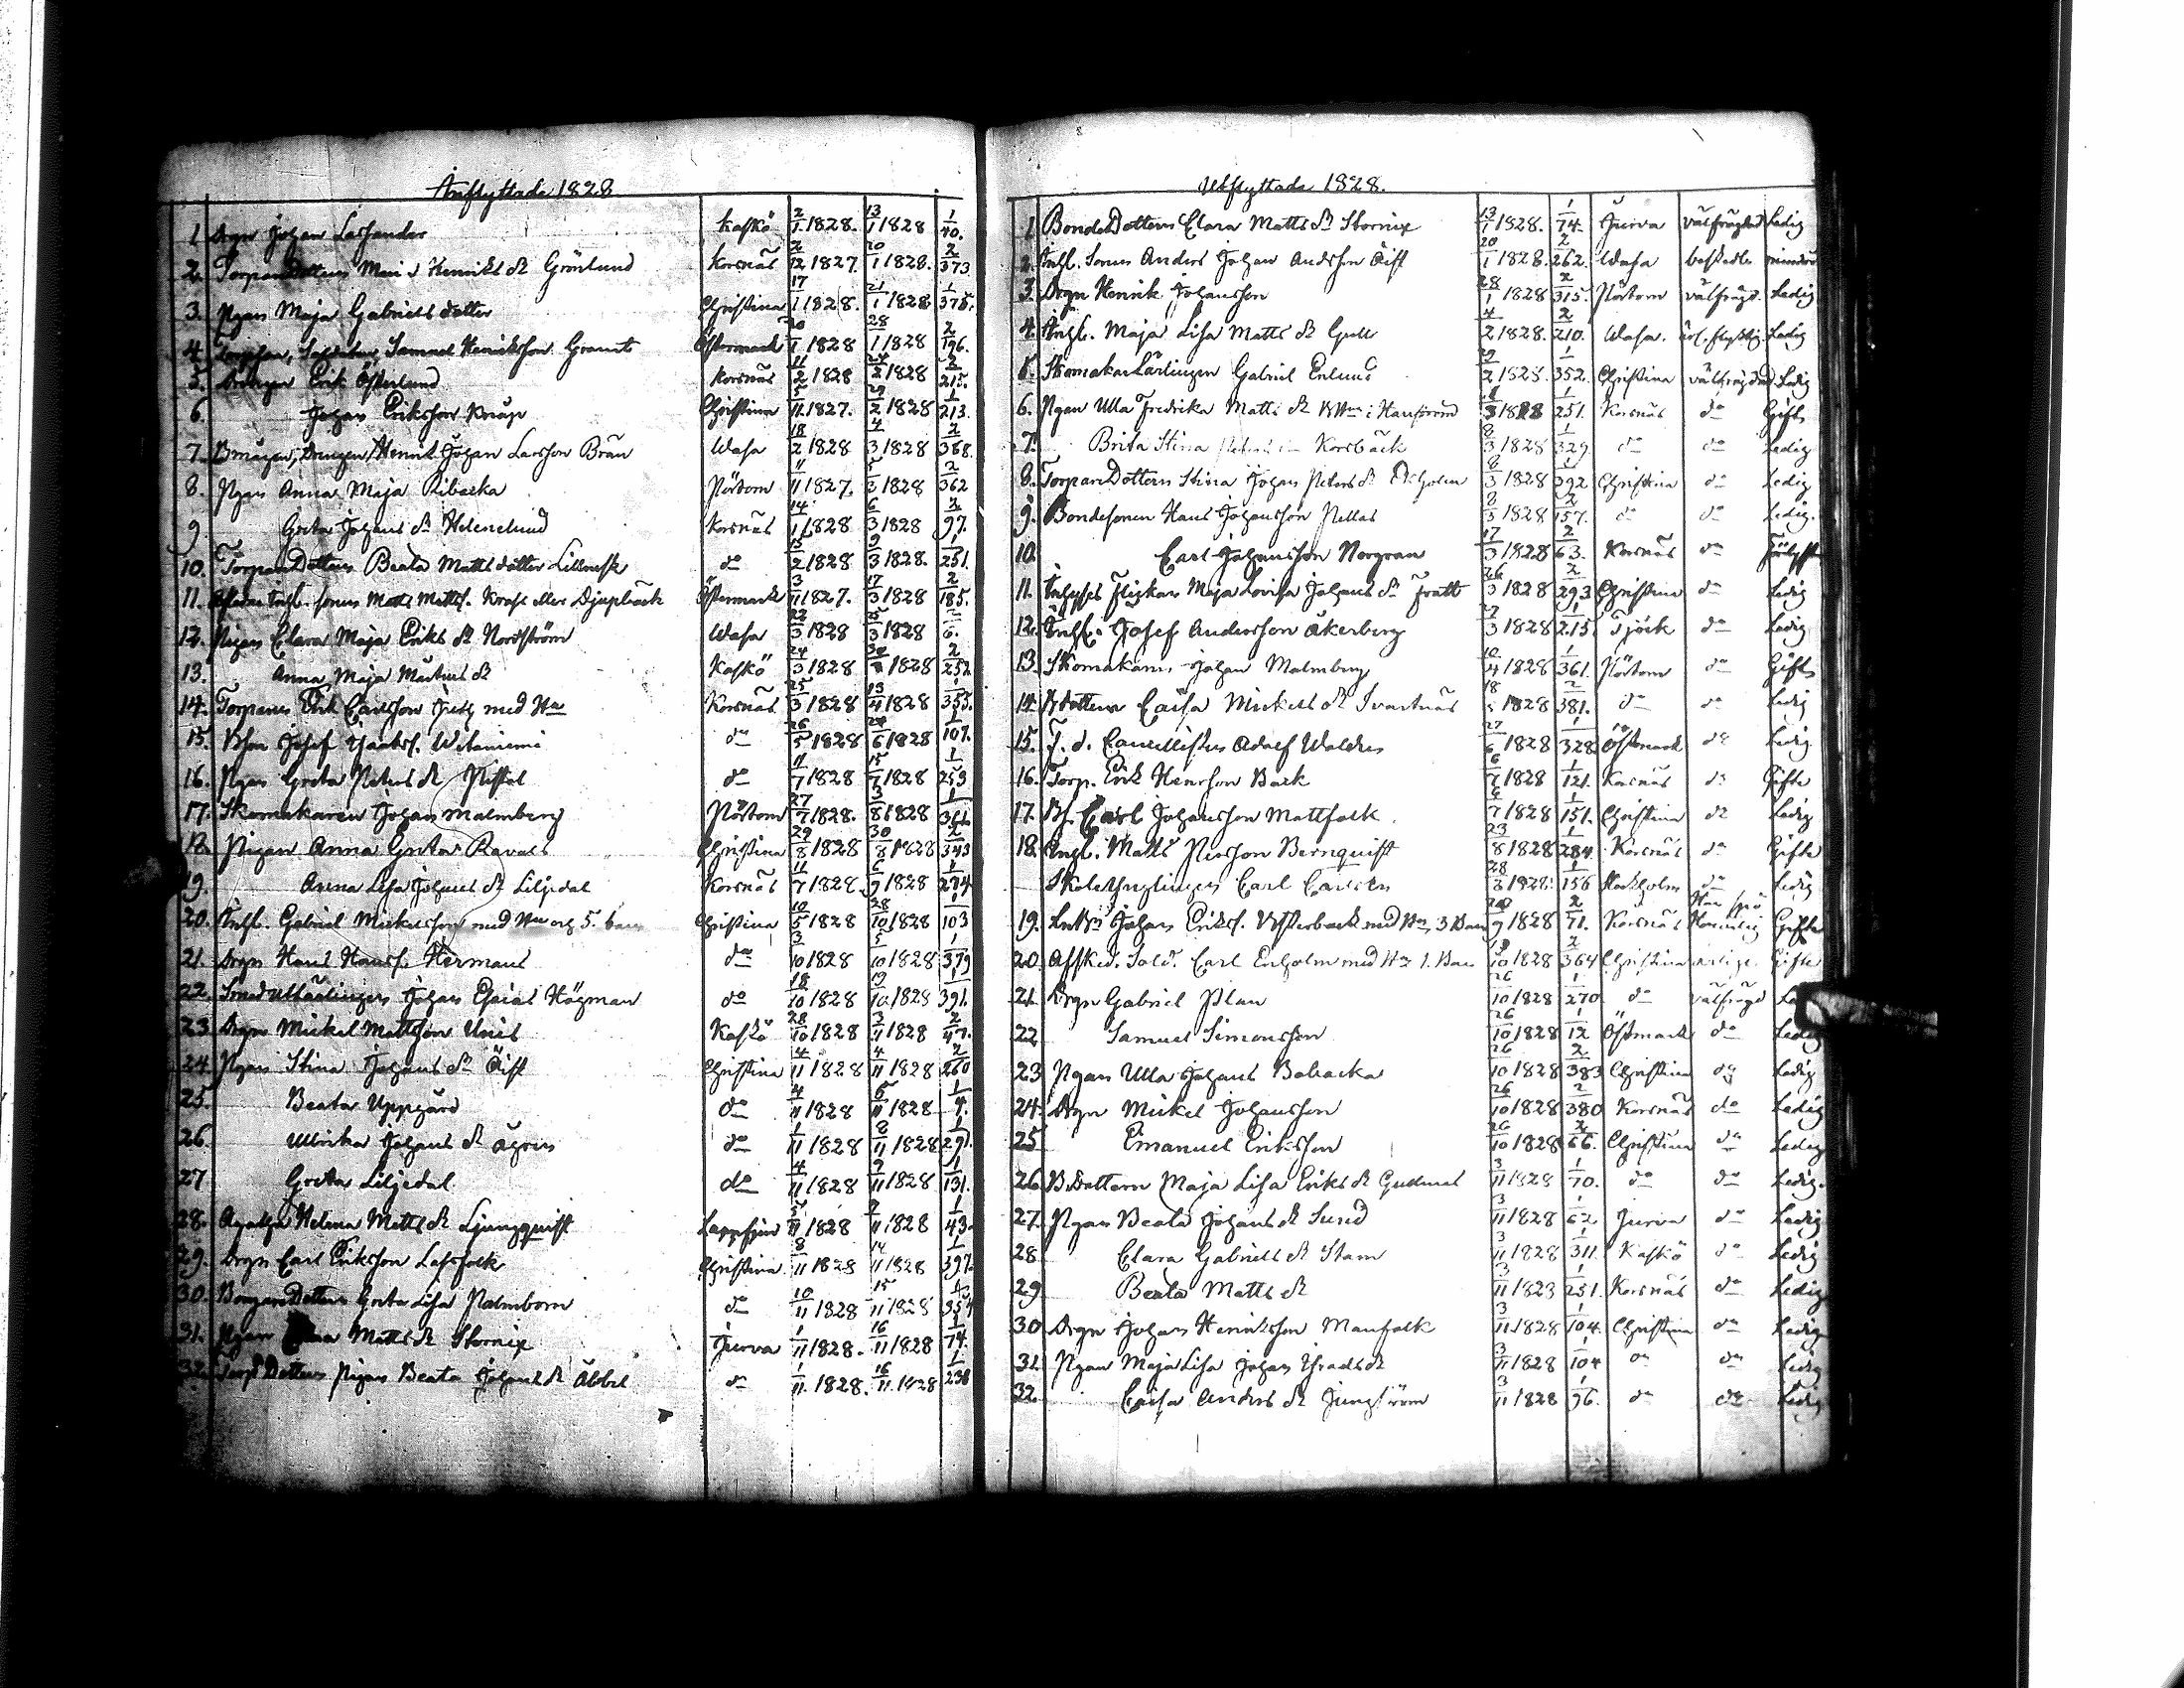 Inflyttade 1828
1 Drgn Johan Lassander Kaskö 2/1 1828. 13/1 1828 1/40.
2. Torpare Dottern Maria Henriks dr Grönlund Korsnäs 2/12 1827. 20/1 1828. 2/373
3. Pigan Maja Gabriels dotter Christina 17/1 1828. 21/1 1828 1/375.
4 Samuel Henriksson Östermark 20/1 1828 28/1 1828 2/196.
5. Drängen Erik Österlund Korsnäs 11/2 1828 24/2 1828
6. Johan Eriksson Knup Christina 5/11 1827. 29/2 1828 1/213.
7. Henrik Johan Larsson Brän Wasa 18/2 1828 4/3 1828 2/368.
8. Pigan Anna Maja Ribacka Pörtom 11/11 1827. 5/3 1828 2/362
9. Greta Johans dr Helenelund Korsnäs 14/1 1828 6/3 1828 2/97.
10. Torpare Dottern Beata Matts dotter do 15/2 1828 9/3 1828. 1/251.
11. Inhs. sonen Matts Mattss. Kraft eller Djupbäck Östermark 3/11 1827. 17/3 1828 2/185.
12. Pigan Clara Maja Eriks dr Nordström Wasa 22/3 1828 25/3 1828 6.
13. Anna Maja Mårtens dr Kaskö 24/3 1828 30/3 1828 2/252
14. Torparen Erik Carlsson med Hu Korsnäs 25/3 1828 13/4 1828 1/355.
15. Bson Josef Jacobss. Witaniemi do 26/5 1828 29/6 1828 1/107.
16. Pigan Greta Peters dr do 11/7 1828 15/7 1828 1/253
17. Skomakaren Johan Malmberg Pörtom 27/7 1828. 3/8 1828 1/361.
18. Pigan Anna Greta Ravals Christina 29/8 1828 30/8 1828 2/343
19. Anna Lisa Johans dr Liljedal Korsnäs 11/7 1828. 6/9 1828 1/274
20. Inhs. Gabriel Mickelsson med Hu och 5. barn Christina 10/5 1828 28/10 1828 1/103
21. Drgn Hans Hanss. Hermans do 3/10 1828 5/10 1828 1/379
22. Johan Esaias Högman do 18/10 1828 19/10 1828 1/391.
23. Drgn Mickel Mattsson Unis Kaskö 28/10 1828 3/11 1828 2/47.
24. Pigan Stina Johans dr Äijt Christina 4/11 1828 4/11 1828 2/260
25. Beata Uppgård do 4/11 1828 6/11 1828 1/4.
26. Ulrika Johans dr Ågren do 1/11 1828 8/11 1828 1/291.
27 Greta Liljedal do 4/11 1828 9/11 1828 1/131.
28. Agatha Helena Matts dr Ljungquist Lappfjerd 5/11 1828 9/11 1828 1/43.
29. Drgn Carl Eriksson Lassfolk Christina 8/11 1828 14/11 1828 1/397.
30. Borgare Dottern Greta Lisa Palmborn do 10/11 1828 15/11 1828
31. Pigan Matts dr Stornix Jurva 1/11 1828. 16/11 1828 1/74.
32. Torp Dottern Pigan Beata Johans dr Äbbel do 1/11 1828. 16/11 1828 1/238
Utflyttade 1828.
1 Bonde Dottern Clara Matts dr Stornix 13/1 1828. 1/74. Jurva välfrägdad Ledig
2. Inhs. Sonen Anders Johan Andsson Äijt 20/1 1828. 2/262. Wasa
3. Drgn Henrik Johansson 28/1 1828 2/315. Pörtom välfrägd. Ledig
4. Inhs. Maja Lisa Matts dr Gull 4/2 1828. 2/210. Wasa. Ledig
5. Skomakare Lärlingen Gabriel Enlund 29/2 1828. 1/352. Christina välfrägdad Ledig
6. Pigan Ulla Fredrika Matts dr 1828 1/251. Korsnäs do Gift
7. Brita Stina Korsbäck 8/3 1828 1/329 do do Ledig
8. Torpare Dottern Stina Johan Peters dr 8/3 1828 1/392 Christina do Ledig
9. Bondesonen Hans Johansson Pellas 8/3 1828 2/157. do do Ledig.
10. Carl Johansson Norgran 17/3 1828 2/63. Korsnäs do
11. Inhyses Flickan Maja Lovisa Johans dr Fratt 26/3 1828 2/293 Christina do Ledig
12. Inhs. Josef Andersson Åkerberg 27/3 1828 1/215 Tjöck do Ledig
13. Skomakaren Johan Malmberg 10/4 1828 1/361. Pörtom do Gift
14. Bdottern Caisa Mickels dr Ivarsnäs 18 1828 2/381. do do Ledig
15. T. d. Cancellisten Adolf Waldén 27/6 1828 1/328 Östmark do Ledig
16. Torp. Erik Henrsson Back 6/7 1828 1/121. Korsnäs do Gifte
17. Bs. Carl Johansson Mattfolk 6/7 1828 1/151. Christina do Ledig
18. Inhs. Matts Persson Bernquist 23/8 1828 1/284 Korsnäs do Gifte
Skole Ynglingen Carl Carlsén 28/8 1828. 1/156 Stockholm do Ledig
19. Johan Erikss. Westerback med Hu, 3 Barn 1828 2/71. Korsnäs Gifte
20. Afsked. Sold. Carl Enholm med Hu 1. Barn 10 1828 2/364 Christina Gifte
21. Drgn Gabriel Plan 26/10 1828 1/270 do välfrägd
22 Samuel Simonsson 26/10 1828 1/12 Östmark do Ledig
23 Pigan Ulla Johans Bobacka 26/10 1828 2/383 Christina do Ledig
24. Drgn Mickel Johansson 26/10 1828 2/380 Korsnäs do Ledig
25 Emanuel Eriksson 26/10 1828 2/66. Christina do Ledig
26. B.Dottern Maja Lisa Eriks dr Gudmas 3/11 1828 1/70. do do Ledig.
27. Pigan Beata Johans dr Sund 3/11 1828 1/62 Jurva do Ledig
28 Clara Gabriels dr Stam 3/11 1828 1/311. Kaskö do Ledig
29 Beata Matts dr 3/11 1828 1/251. Korsnäs do Ledig
30 Drgn Johan Henriksson Manfolk 3/11 1828 1/104. Christina do Ledig
31. Pigan Maja Lisa Johan Israels dr 3/11 1828 1/104 do do Ledig
32. Caisa Anders dr Jungström 3/11 1828 1/96. do do Ledig